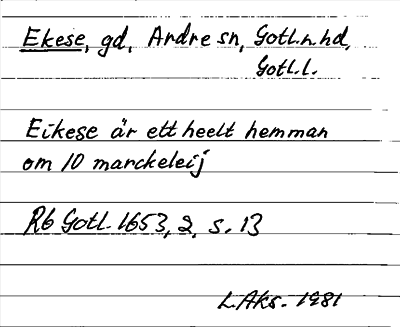 Ekese, gd, Ardre sn, Gotl.n.hd,
Gotl.l.
Eikese är ett heelt hemman
om 10 marckeleij
Rb Gotl. 1653, 2, s. 13
L.Aks. 1981